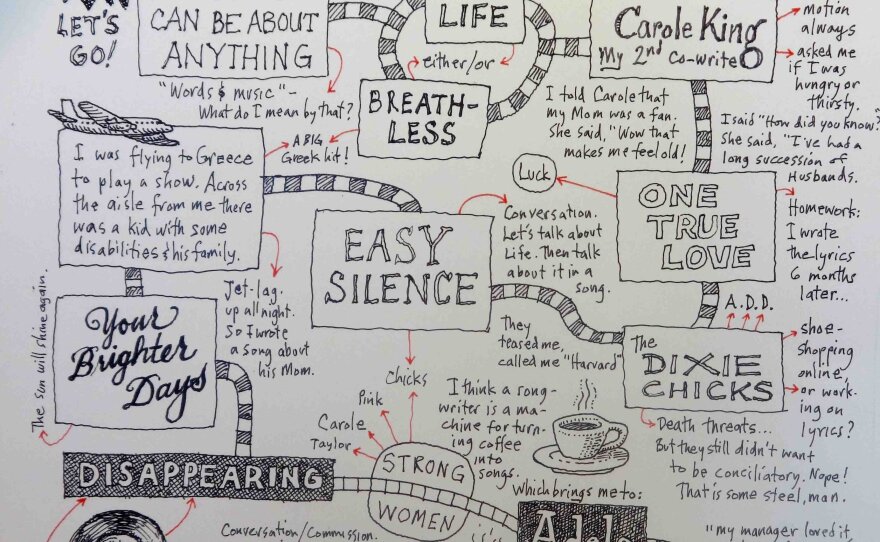 LET'S
GO!
CAN BE ABOUT
ANYTHING
LIFE
either/or
Carole King
My 2nd Co-write
motion
always
asked me
if I was
hungry or
thirsty.
"Words & music" –
What do I mean by that?
BREATH-
LESS
A BIG
Greek hit!
I told Carole that
my Mom was a fan.
She said, "Wow that
makes me feel old!
I said "How did you know?"
She said, "I've had a
long succession of
Husbands.
I was flying to Greece
to play a show. Across
the aisle from me there
was a kid with some
disabilities & his family.
Luck
ONE
TRUE
LOVE
Homework:
I wrote
the lyrics
6 months
later...
EASY
SILENCE
Conversation.
Let's talk about
Life. Then talk
about it in a
song.
Jet-lag.
up all night.
So I wrote
a song about
his Mom.
The sun will shine again.
Your
Brighter
Days
They
teased me,
called me "Harvard"
A.D.D.
The
DIXIE
CHICKS
shoe-
shopping
online
or work-
ing on
lyrics?
Chicks
Pink
Carole
Taylor
I think a song-
writer is a ma-
chine for turn-
ing coffee
into
songs.
Death threats...
But they still didn't want
to be conciliatory. Nope!
That is some steel, man.
DISAPPEARING
STRONG
WOMEN
Which brings me to:
Adele
Conversation/Commission.
"my manager loved it,